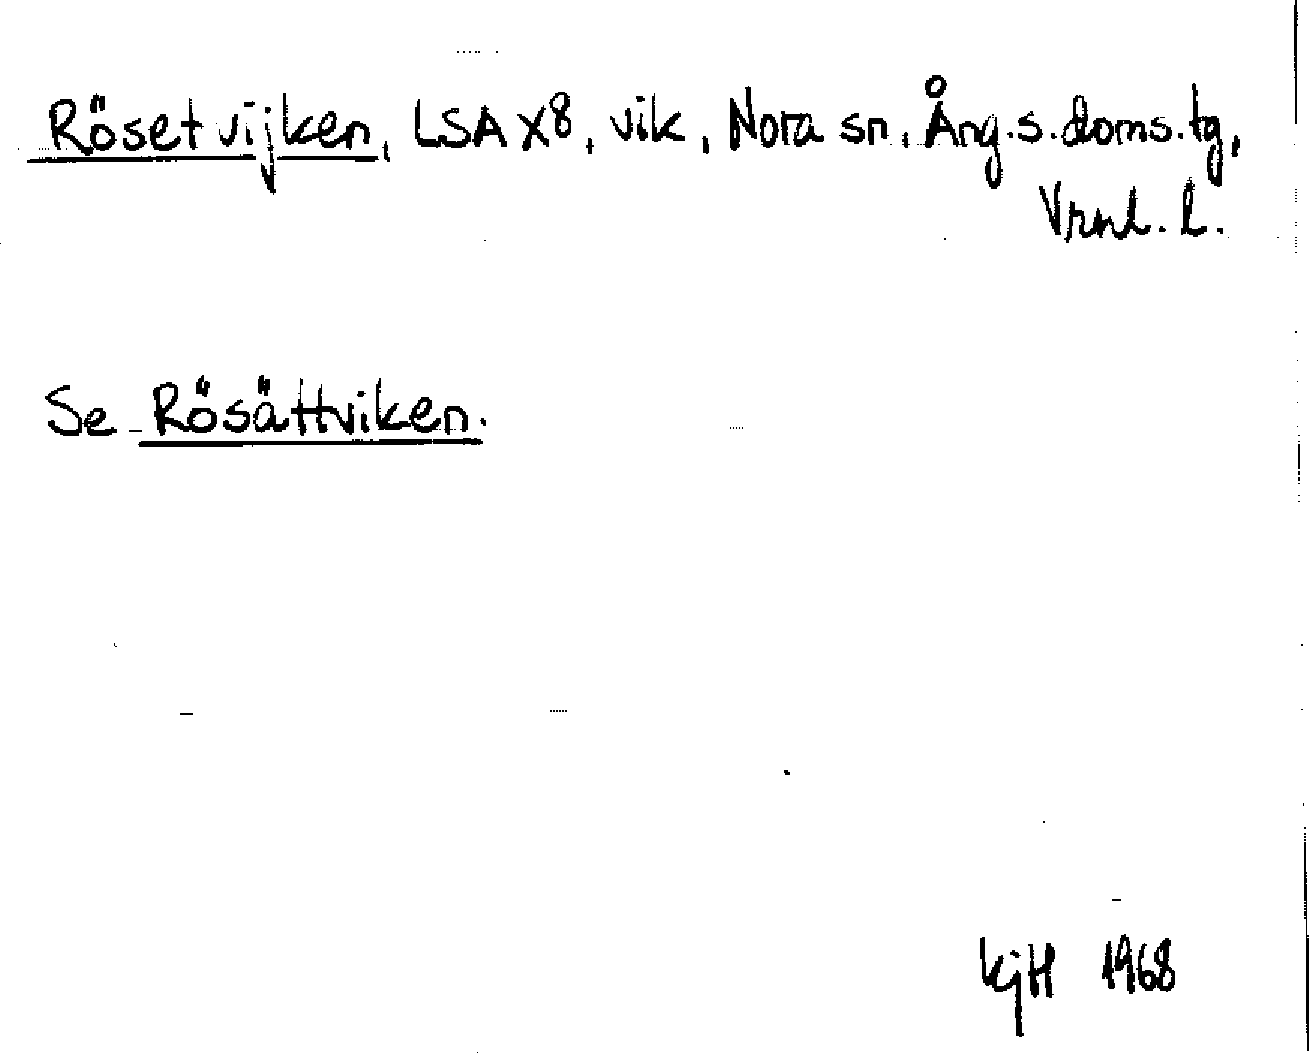 Rösetvijken, LSA X8, vik, Nora sn, Ång.s.doms.tg,
Vrnl. l.
Se Rösättviken.
KjH 1968